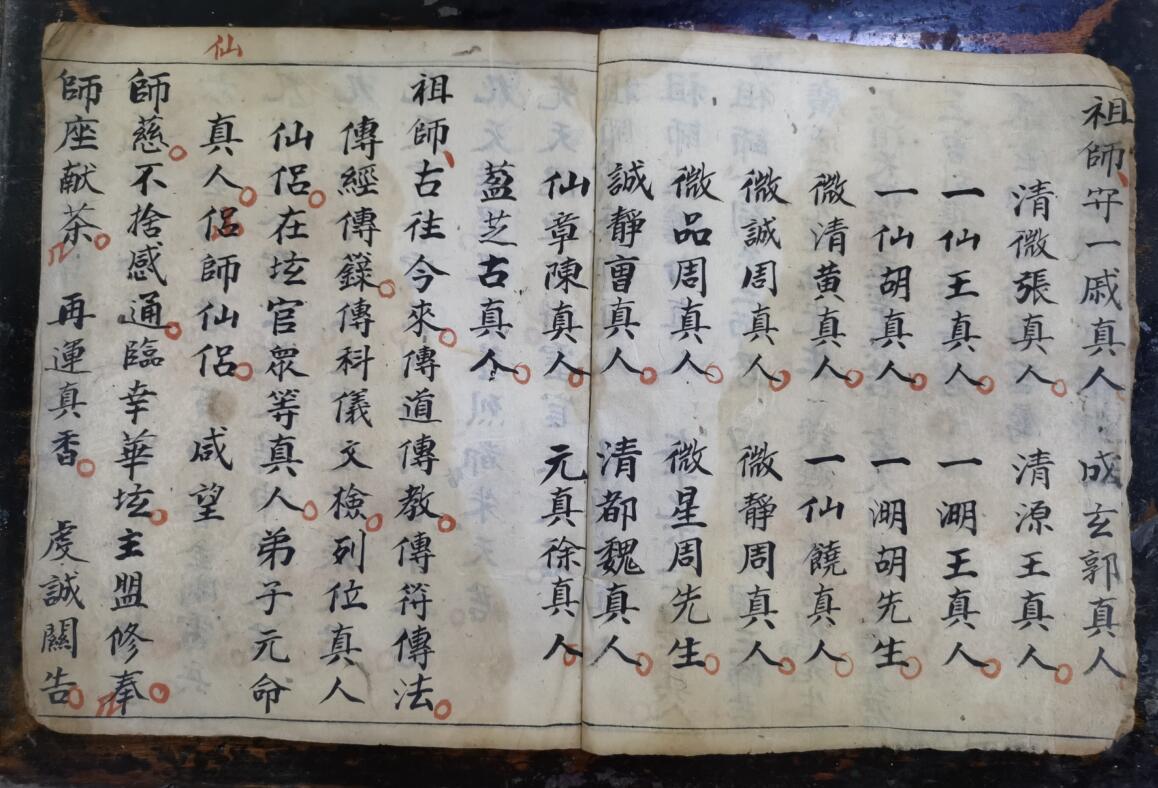 祖師守一戚真人 成玄郭真人
清微張真人 清源王真人
一仙王真人 一溯王真人
一仙胡真人 一溯胡先生
微清黄真人 一仙饒真人
微誠周真人 微靜周真人
微品周真人 微星周先生
誠靜曺真人 清都魏真人
仙章陳真人 元真徐真人
蓋芝古真人
祖師古往今來傳道傳教傳符傳法
傳經傳籙傳科儀文檢列位真人
仙侣在坛官眾等真人弟子元命
真人侣師仙侣 咸望
師慈不捨感通臨幸華坛主盟修奉
師座献茶 再運真香 虔誠關告
仙